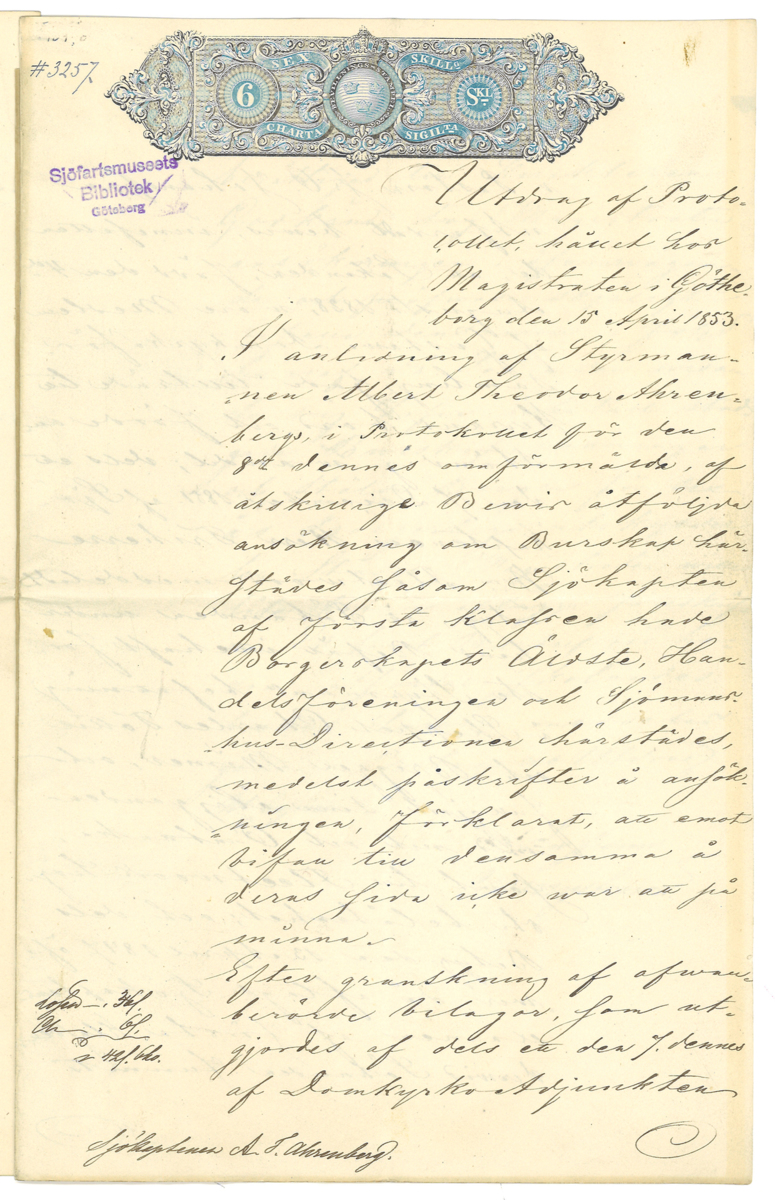 #3257
SEX SKILL:
6 SKL
CHARTA SIGILÆTA
Sjöfartsmuseets
Bibliotek
Göteborg
Utdrag af Proto-
collet, hållet hos
Magistraten i Göthe-
borg den 15 April 1853.
I anledning af Styrman-
nen Albert Theodor Ahren-
bergs, i Protokollet för den
8de dennes omförmälda, af
åtskillige Bewis åtföljda
ansökning om Burskap här-
städes såsom Sjökapten
af första klassen hade
Borgerskapets Äldste, Han-
delsföreningen och Sjömans-
hus-Directionen härstädes,
medelst påskrifter å ansök-
ningen, förklarat, att emot
bifall till densamma å
deras sida icke war att på
minna.
Efter granskning af ofwan-
berörde bilagor, som ut-
gjordes af dels ett den 7. dennes
af Domkyrko Adjunkten
Lösen — . 36 s.
Ch . 6 s.
42 s. bko.
Sjökaptenen A. T. Ahrenberg.